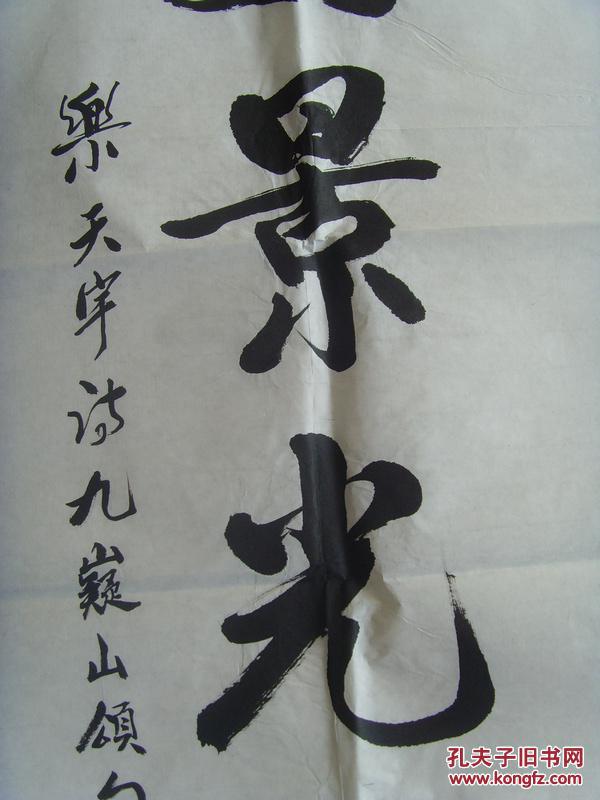 景光
樂天宇詩九嶷山頌句
孔夫子旧书网
www.kongfz.com